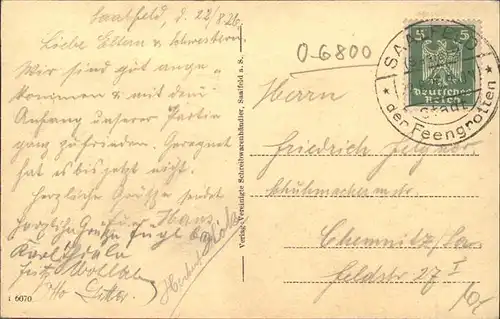 Saalfeld, d. 22/8.26.
Liebe Eltern u. Schwestern.
Wir sind gut ange-
kommen & mit dem
Anfang unserer Partie
ganz zufrieden. Geregnet
hat es bis jetzt nicht.
Herzliche Grüße sendet
Hans
Herzliche Grüße fügt bei
Otto
Herbert
i 6070
Verlag: Vereinigte Schreibwarenhändler, Saalfeld a. S.
0-6800
5 5
Deutsches
Reich
SAALFELD
Stadt
der Feengrotten
Herrn
Friedrich
Schuhmachermstr.
Chemnitz/Sa.
Feldstr 27 I